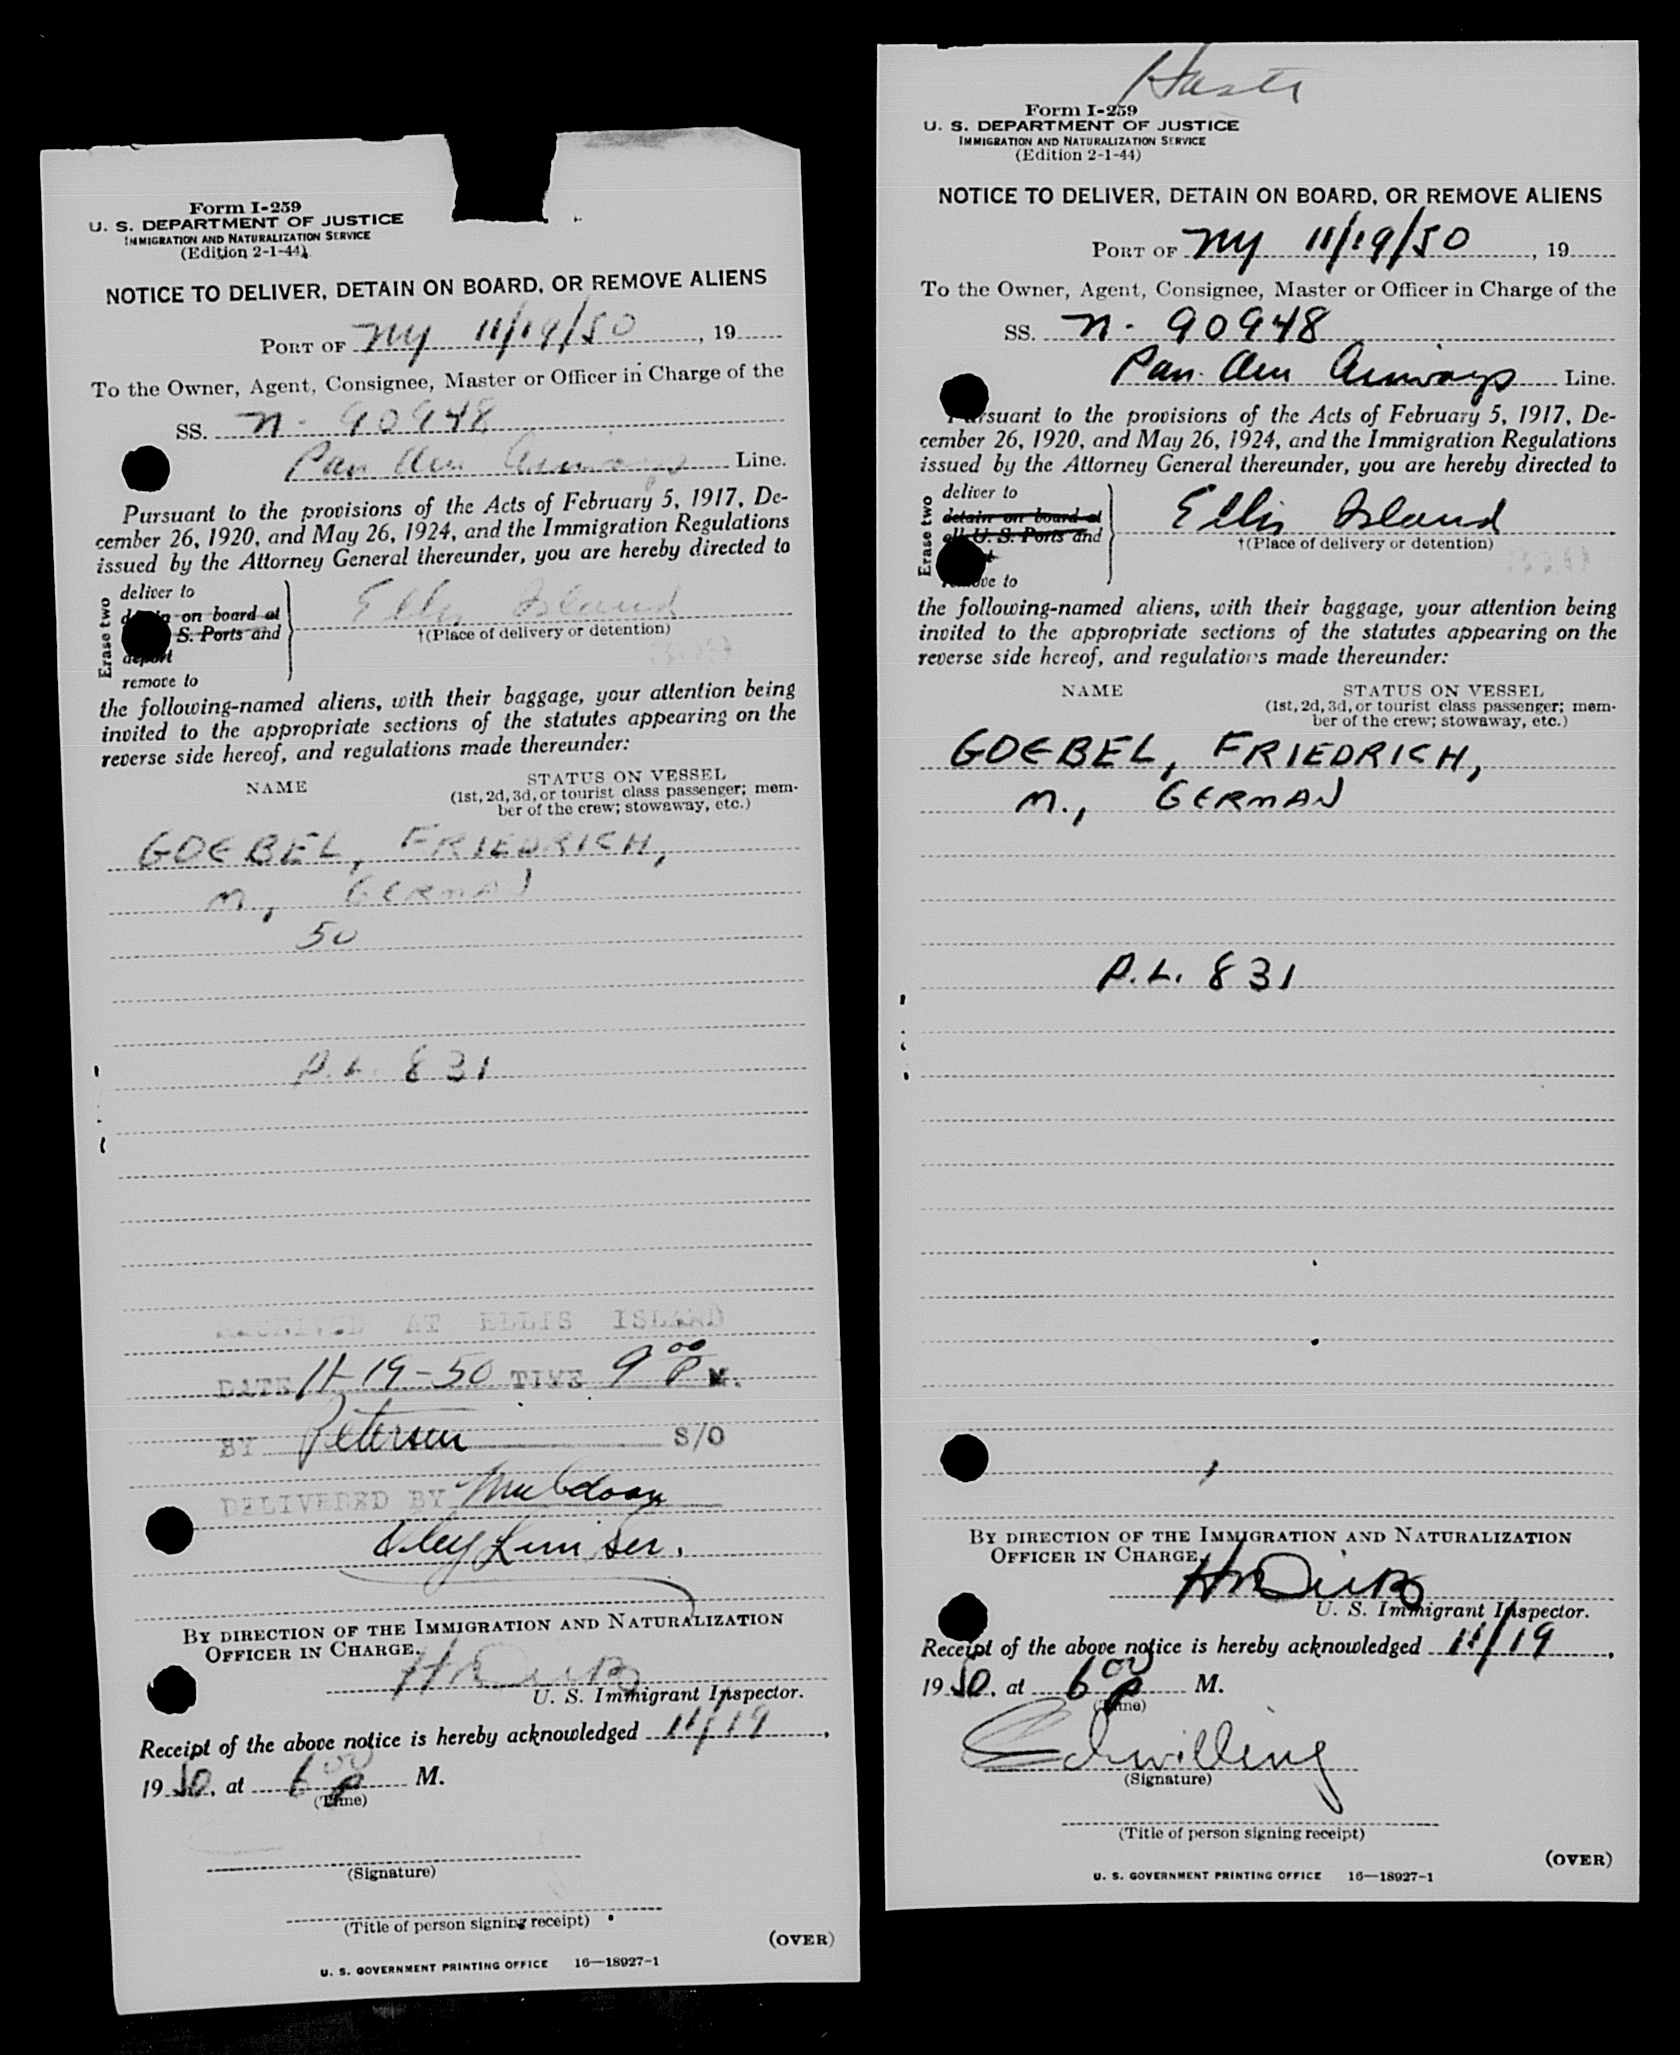 Form I-259
U. S. DEPARTMENT OF JUSTICE
IMMIGRATION AND NATURALIZATION SERVICE
(Edition 2-1-44)
NOTICE TO DELIVER, DETAIN ON BOARD, OR REMOVE ALIENS
PORT OF NY 11/19/50, 19
To the Owner, Agent, Consignee, Master or Officer in Charge of the
SS. N-90948
Pan Am Airways Line.
Pursuant to the provisions of the Acts of February 5, 1917, De-
cember 26, 1920, and May 26, 1924, and the Immigration Regulations
issued by the Attorney General thereunder, you are hereby directed to
Erase two
deliver to
on board at
S. Ports and
deport
remove to
Ellis Island
†(Place of delivery or detention)
the following-named aliens, with their baggage, your attention being
invited to the appropriate sections of the statutes appearing on the
reverse side hereof, and regulations made thereunder:
NAME STATUS ON VESSEL
(1st, 2d, 3d, or tourist class passenger; mem-
ber of the crew; stowaway, etc.)
GOEBEL, FRIEDRICH,
M., GERMAN
50
P.L. 831
RECEIVED AT ELLIS ISLAND
DATE 11-19-50 TIME 9 00 P M.
BY Petersen S/O
DELIVERED BY
BY DIRECTION OF THE IMMIGRATION AND NATURALIZATION
OFFICER IN CHARGE.
U. S. Immigrant Inspector.
Receipt of the above notice is hereby acknowledged 11/19,
1950, at 6 00 P M.
(Time)
(Signature)
(Title of person signing receipt)
(OVER)
U. S. GOVERNMENT PRINTING OFFICE 16—18927-1
Form I-259
U. S. DEPARTMENT OF JUSTICE
IMMIGRATION AND NATURALIZATION SERVICE
(Edition 2-1-44)
NOTICE TO DELIVER, DETAIN ON BOARD, OR REMOVE ALIENS
PORT OF NY 11/19/50, 19
To the Owner, Agent, Consignee, Master or Officer in Charge of the
SS. N-90948
Pan Am Airways Line.
Pursuant to the provisions of the Acts of February 5, 1917, De-
cember 26, 1920, and May 26, 1924, and the Immigration Regulations
issued by the Attorney General thereunder, you are hereby directed to
Erase two
deliver to
detain on board at
all U. S. Ports and
remove to
Ellis Island
†(Place of delivery or detention)
the following-named aliens, with their baggage, your attention being
invited to the appropriate sections of the statutes appearing on the
reverse side hereof, and regulations made thereunder:
NAME STATUS ON VESSEL
(1st, 2d, 3d, or tourist class passenger; mem-
ber of the crew; stowaway, etc.)
GOEBEL, FRIEDRICH,
M., GERMAN
P.L. 831
BY DIRECTION OF THE IMMIGRATION AND NATURALIZATION
OFFICER IN CHARGE.
U. S. Immigrant Inspector.
Receipt of the above notice is hereby acknowledged 11/19,
1950, at 6 00 P M.
(Time)
(Signature)
(Title of person signing receipt)
(OVER)
U. S. GOVERNMENT PRINTING OFFICE 16—18927-1